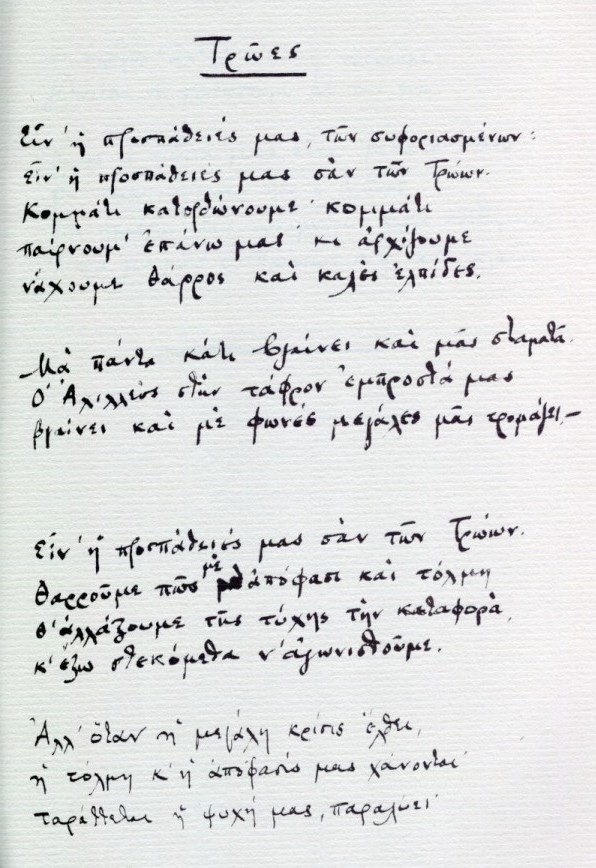 Τρῶες
Εἶν' ἡ προσπάθειές μας, τῶν συφοριασμένων·
Εἶν' ἡ προσπάθειές μας σὰν τῶν Τρώων.
Κομμάτι κατορθώνουμε· κομμάτι
παίρνουμ' ἐπάνω μας· κι ἀρχίζουμε
νἄχουμε θάρρος καὶ καλὲς ἐλπίδες.
Μὰ πάντα κάτι βγαίνει καὶ μᾶς σταματᾶ.
Ὁ Ἀχιλλεὺς στὴν τάφρον ἐμπροστά μας
βγαίνει καὶ μὲ φωνὲς μεγάλες μᾶς τρομάζει.—
Εἶν' ἡ προσπάθειές μας σὰν τῶν Τρώων.
Θαρροῦμε πῶς μὲ ἀπόφασι καὶ τόλμη
θ' ἀλλάξουμε τῆς τύχης τὴν καταφορά,
κ' ἔξω στεκόμεθα ν' ἀγωνισθοῦμε.
Ἀλλ' ὅταν ἡ μεγάλη κρίσις ἔλθει,
ἡ τόλμη κ' ἡ ἀπόφασίς μας χάνονται·
ταράττεται ἡ ψυχή μας, παραλύει·